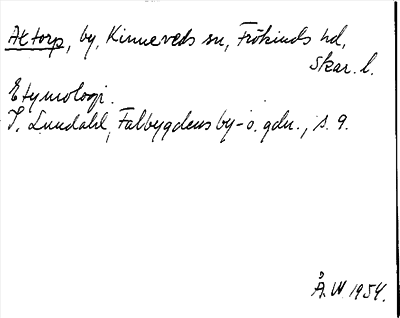 Aktorp, by, Kinneveds sn, Frökinds hd,
Skar. l.
Etymologi.
I. Lundahl, Falbygdens by- o. gdn., s. 9.
Å. W. 1954.